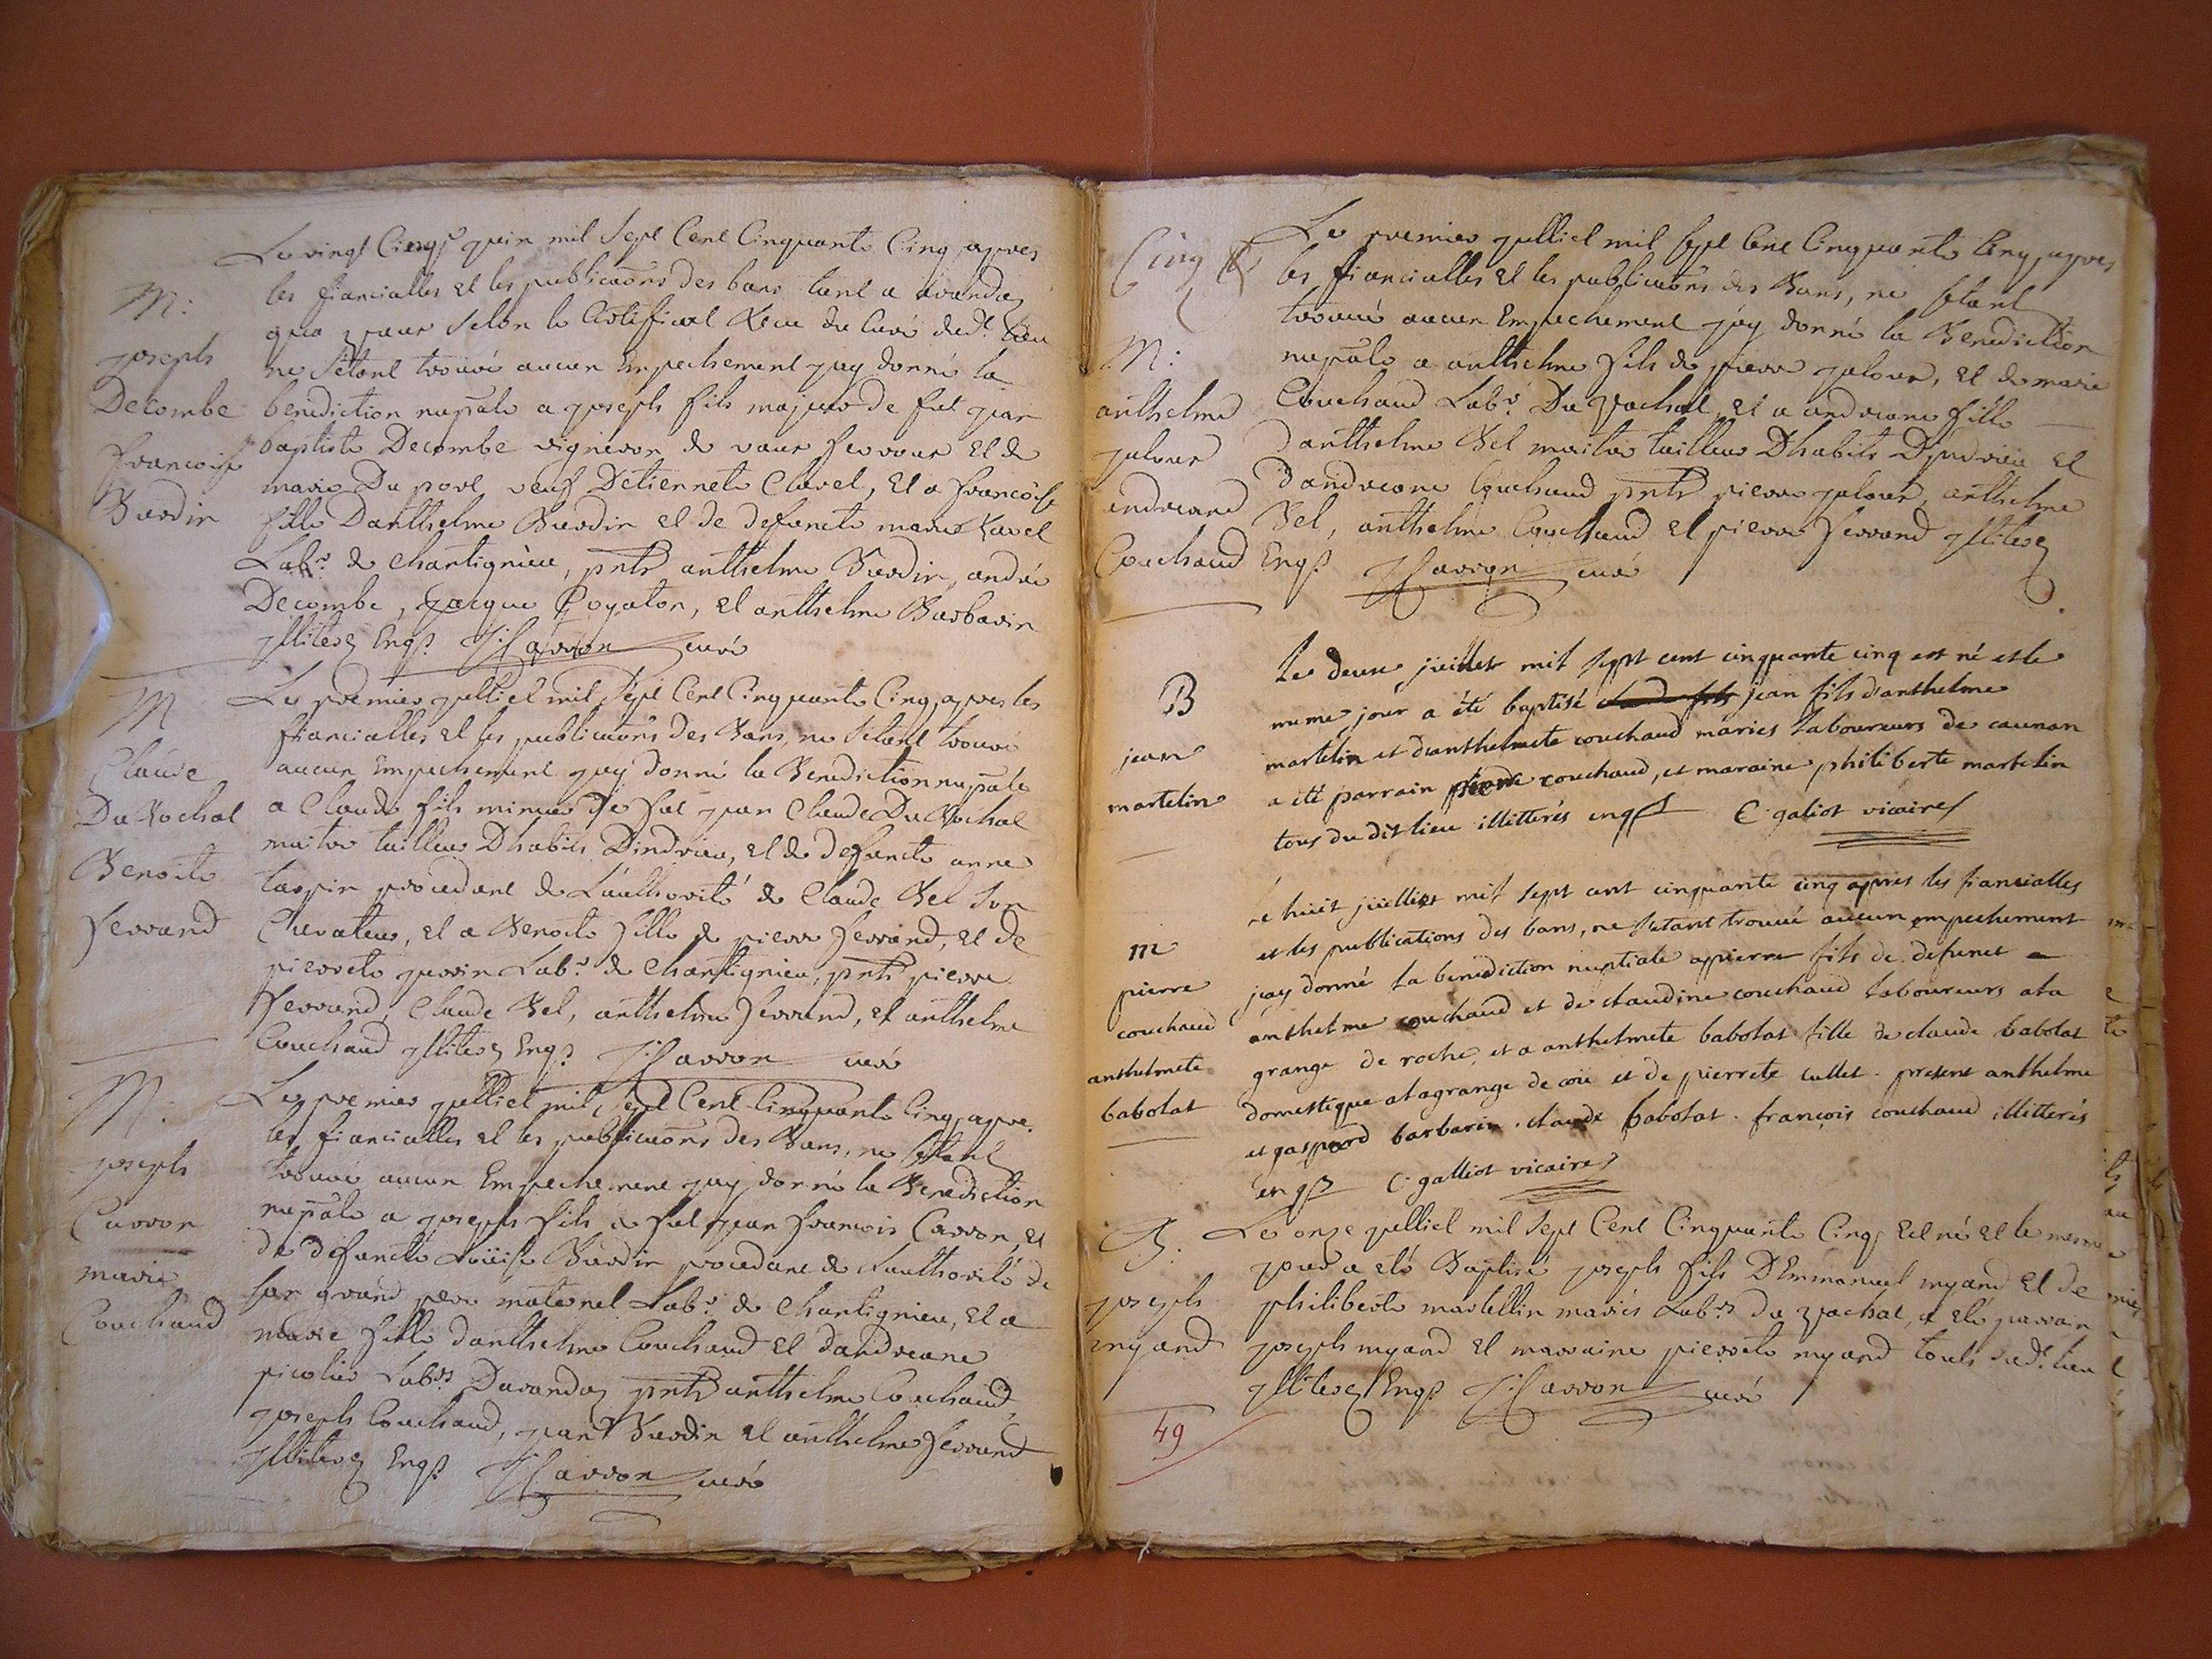 Le vingt Cinq juin mil Sept Cent Cinquante Cinq apres
les fiancialles et les publicaons des bans tant a avandas
qua vaux Selon le Certificat Receu du Curé dud. lieu
ne Setant trouvé aucun Empechement jay donné la
benediction nupale a joseph fils majeur de fut jean
baptiste Decombe vigneron de vaux fevroux et de
marie Du port veuf Detiennete Clavel, et a francoise
fille Danthelme Burdin et de defuncte marie Ravel
Labr. de Chantignieu, pnts anthelme Burdin, andré
Decombe, jacque Poyaton, et anthelme Barbarin
jlliteres Enqs J: Carron curé
M:
joseph
Decombe
francoise
Burdin
Le premier julliet mil Sept Cent Cinquante Cinq, apres les
fiancialles et les publicaons des Bans, ne Setant trouvé
aucun Empechement jay donné la Benediction nupale
a Claude fils mineur de fut jean Claude Du Rochat
maitre tailleur Dhabits Dindrieu, et de defuncte anne
taspin procedant de Lauthorité de Claude Bel Son
Curateur, et a Benoite fille de pierre ferrand, et de
pierrete juvin Labr. de Chantignieu, pnts pierre
ferrand, Claude Bel, anthelme ferrand, et anthelme
Couchaud jlliteres Enqs J: Carron curé
M
Claude
Du Rochat
Benoite
ferrand
Le premier julliet mil Sept Cent Cinquante Cinq, apre.
les fiancialles et les publicaons des Bans, ne Setant
trouvé aucun Empechement jay donné la Benediction
nupale a joseph fils de fut jean francois Carron, et
de defuncte Louise Burdin procedant de Lauthorité de
son grand pere maternel Labr. de Chantignieu, et a
marie fille danthelme Couchaud et dandreane
picolier Labrs Davandas pnts anthelme Couchaud,
joseph Couchaud, jean Burdin et anthelme ferrand
jlliteres Enqs J: Carron curé
M:
joseph
Carron
marie
Couchaud
Cinq
Le premier julliet mil Sept Cent Cinquante Cinq, apres
les fiancialles et les publicaons des Bans, ne Setant
trouvé aucun Empechement jay donné la Benediction
nupale a anthelme fils de pierre jaloux, et de marie
Couchaud Labr. Du vachat, et a andreane fille
danthelme Bel maitre tailleur Dhabits Dindrieu et
Dandreane Couchaud pnts pierre jaloux, anthelme
Bel, anthelme Couchaud et pierre ferrand jlliteres
Enqs J: Carron curé
M:
anthelme
jaloux
andreane
Couchaud
Le deux juillet mil sept cent cinquante cinq est né et le
meme jour a été baptisé jean fils d'anthelme
martelin et d'anthelmete couchaud mariés laboureurs de caunan
a été parrain couchaud, et maraine philiberte martelin
tous du dit lieu illitterés enqs C. galiot vicaire
B
jean
martelin
Le huit juillet mil sept cent cinquante cinq apres les fiancialles
et les publications des bans, ne s'etant trouvé aucun empechement
jay donné la benediction nuptiale a pierre fils de defunct
anthelme couchaud et de claudine couchaud laboureurs a la
grange de roche, et a anthelmete babolat fille de claude babolat
domestique a la grange de coüe et de pierrete cullet. present anthelme
et gaspard barbarin. claude babolat. françois couchaud illitterés
enqs C. galliot vicaire
m
pierre
couchaud
anthelmete
babolat
Le onze julliet mil Sept Cent Cinquante Cinq Est né et le meme
jour a eté Baptisé joseph fils DEmmanuel myand et de
philiberte martellin mariés Labrs du vachat, a eté parrain
joseph myand et marraine pierrete myand touts dud. lieu
jlliteres Enqs J: Carron curé
B.
joseph
myand
49